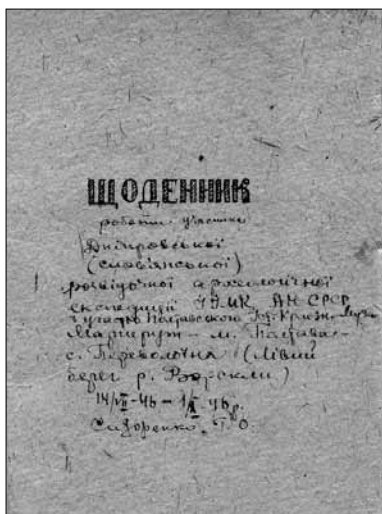 ЩОДЕННИК
роботи учасника
Дніпровської
(слов'янської)
розвідочної археологічної
експедиції ІІМК АН СРСР
з участю Полтавського Музею
Маршрут – м. Полтава –
с. Переволочна (Лівий
берег р. Ворскли)
14/VII-46 – 1/X 46 р.
Сидоренко, Г. О.